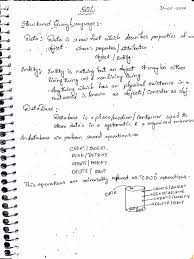 SQL
Structured Query Language :-
Data :- Data is a raw fact which describes properties of an
object
Object / Entity
Entity :- Entity is nothing but an object it may be either
living thing and nonliving thing
Anything which has an physical existence in a
real world is known as object / consider as obj
DataBase :-
Database is a place / function / container used to
store data in a systematic & organised manner
In database we perform several operations
CREATE / INSERT
READ / RETRIVE
UPDATE / MODIFY
DELETE / DROP
This operations are universally referred as CRUD operations
DATA
CREATE / INSERT
READ / RETRIVE
UPDATE / MODIFY
DELETE /